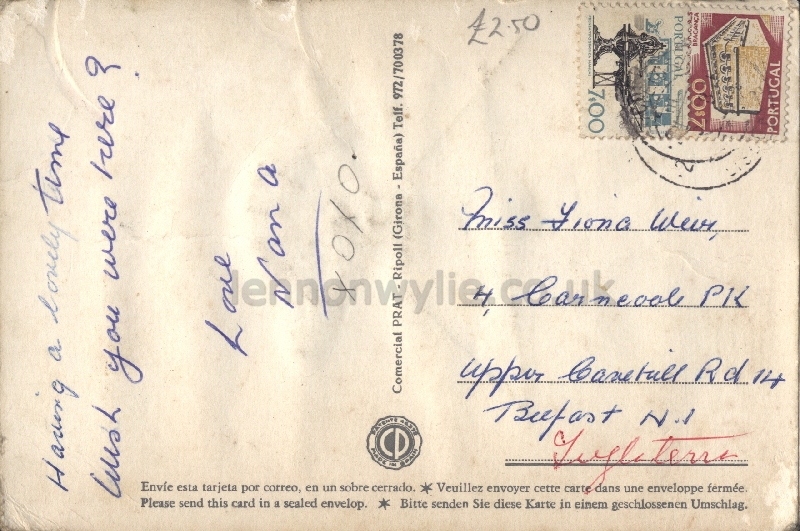 £2.50
Having a lovely time
Wish you were here?
Love
Nana
XOXO.
Comercial PRAT - Ripoll (Girona - España) Telf. 972/700378
PORTUGAL
7$00
BRAGANÇA
2$00
PORTUGAL
dennonwylie.co.uk
Miss Fiona Weir,
4, PK
Upper Cavehill Rd 14
Belfast N.I
Inglaterra
Envíe esta tarjeta por correo, en un sobre cerrado. ✶ Veuillez envoyer cette carte dans une enveloppe fermée.
Please send this card in a sealed envelop. ✶ Bitte senden Sie diese Karte in einem geschlossenen Umschlag.